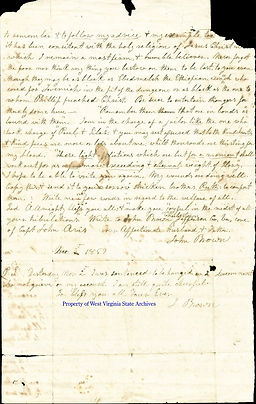 to remember & to follow my advice & my example too
it has been consistent with the holy religion of Jesus Christ in
which I remain a most firm, & humble believer. Never forget
the poor nor think any thing you bestow on them to be lost, to you even
though they may be as black as Ebedmelch the Ethiopean eunuch who
cared for Jeremiah in the pit of the dungeon; or as black as the one to
whom Phillip preached Christ. Be sure to entertain strangers, for
thereby some have — "Remember them that are in bonds as
bound with them." I am in charge of a jailor like the one who
took charge of "Paul & Silas;" & you may rest assured that both kind hearts
& kind faces are more or less about me; whilst thousands are thirsting for
my blood. "These light afflictions which are but for a moment shall
work out for us a far more exceeding & eternal weight of Glory."
I hope to be able to write you again. My wounds are doing well.
Copy this & send it to your sorrow stricken brothers, Ruth; to comfort
them. Write me a few words in regard to the welfare of all.
God Allmighty bless you all: & make you joyful in the midst of all
your tribulations. Write to John Brown Jefferson Co, Va, care
of Capt John Avis Your Affectionate Husband, & Father.
John Brown
Nov. 3 1859
P.S. Yesterday Nov 2 I was sentenced to be hanged on 2 Decem next.
Do not grieve on my account. I am still quite cheerful.
God bless you all Yours Ever
J Brown
Property of West Virginia State Archives